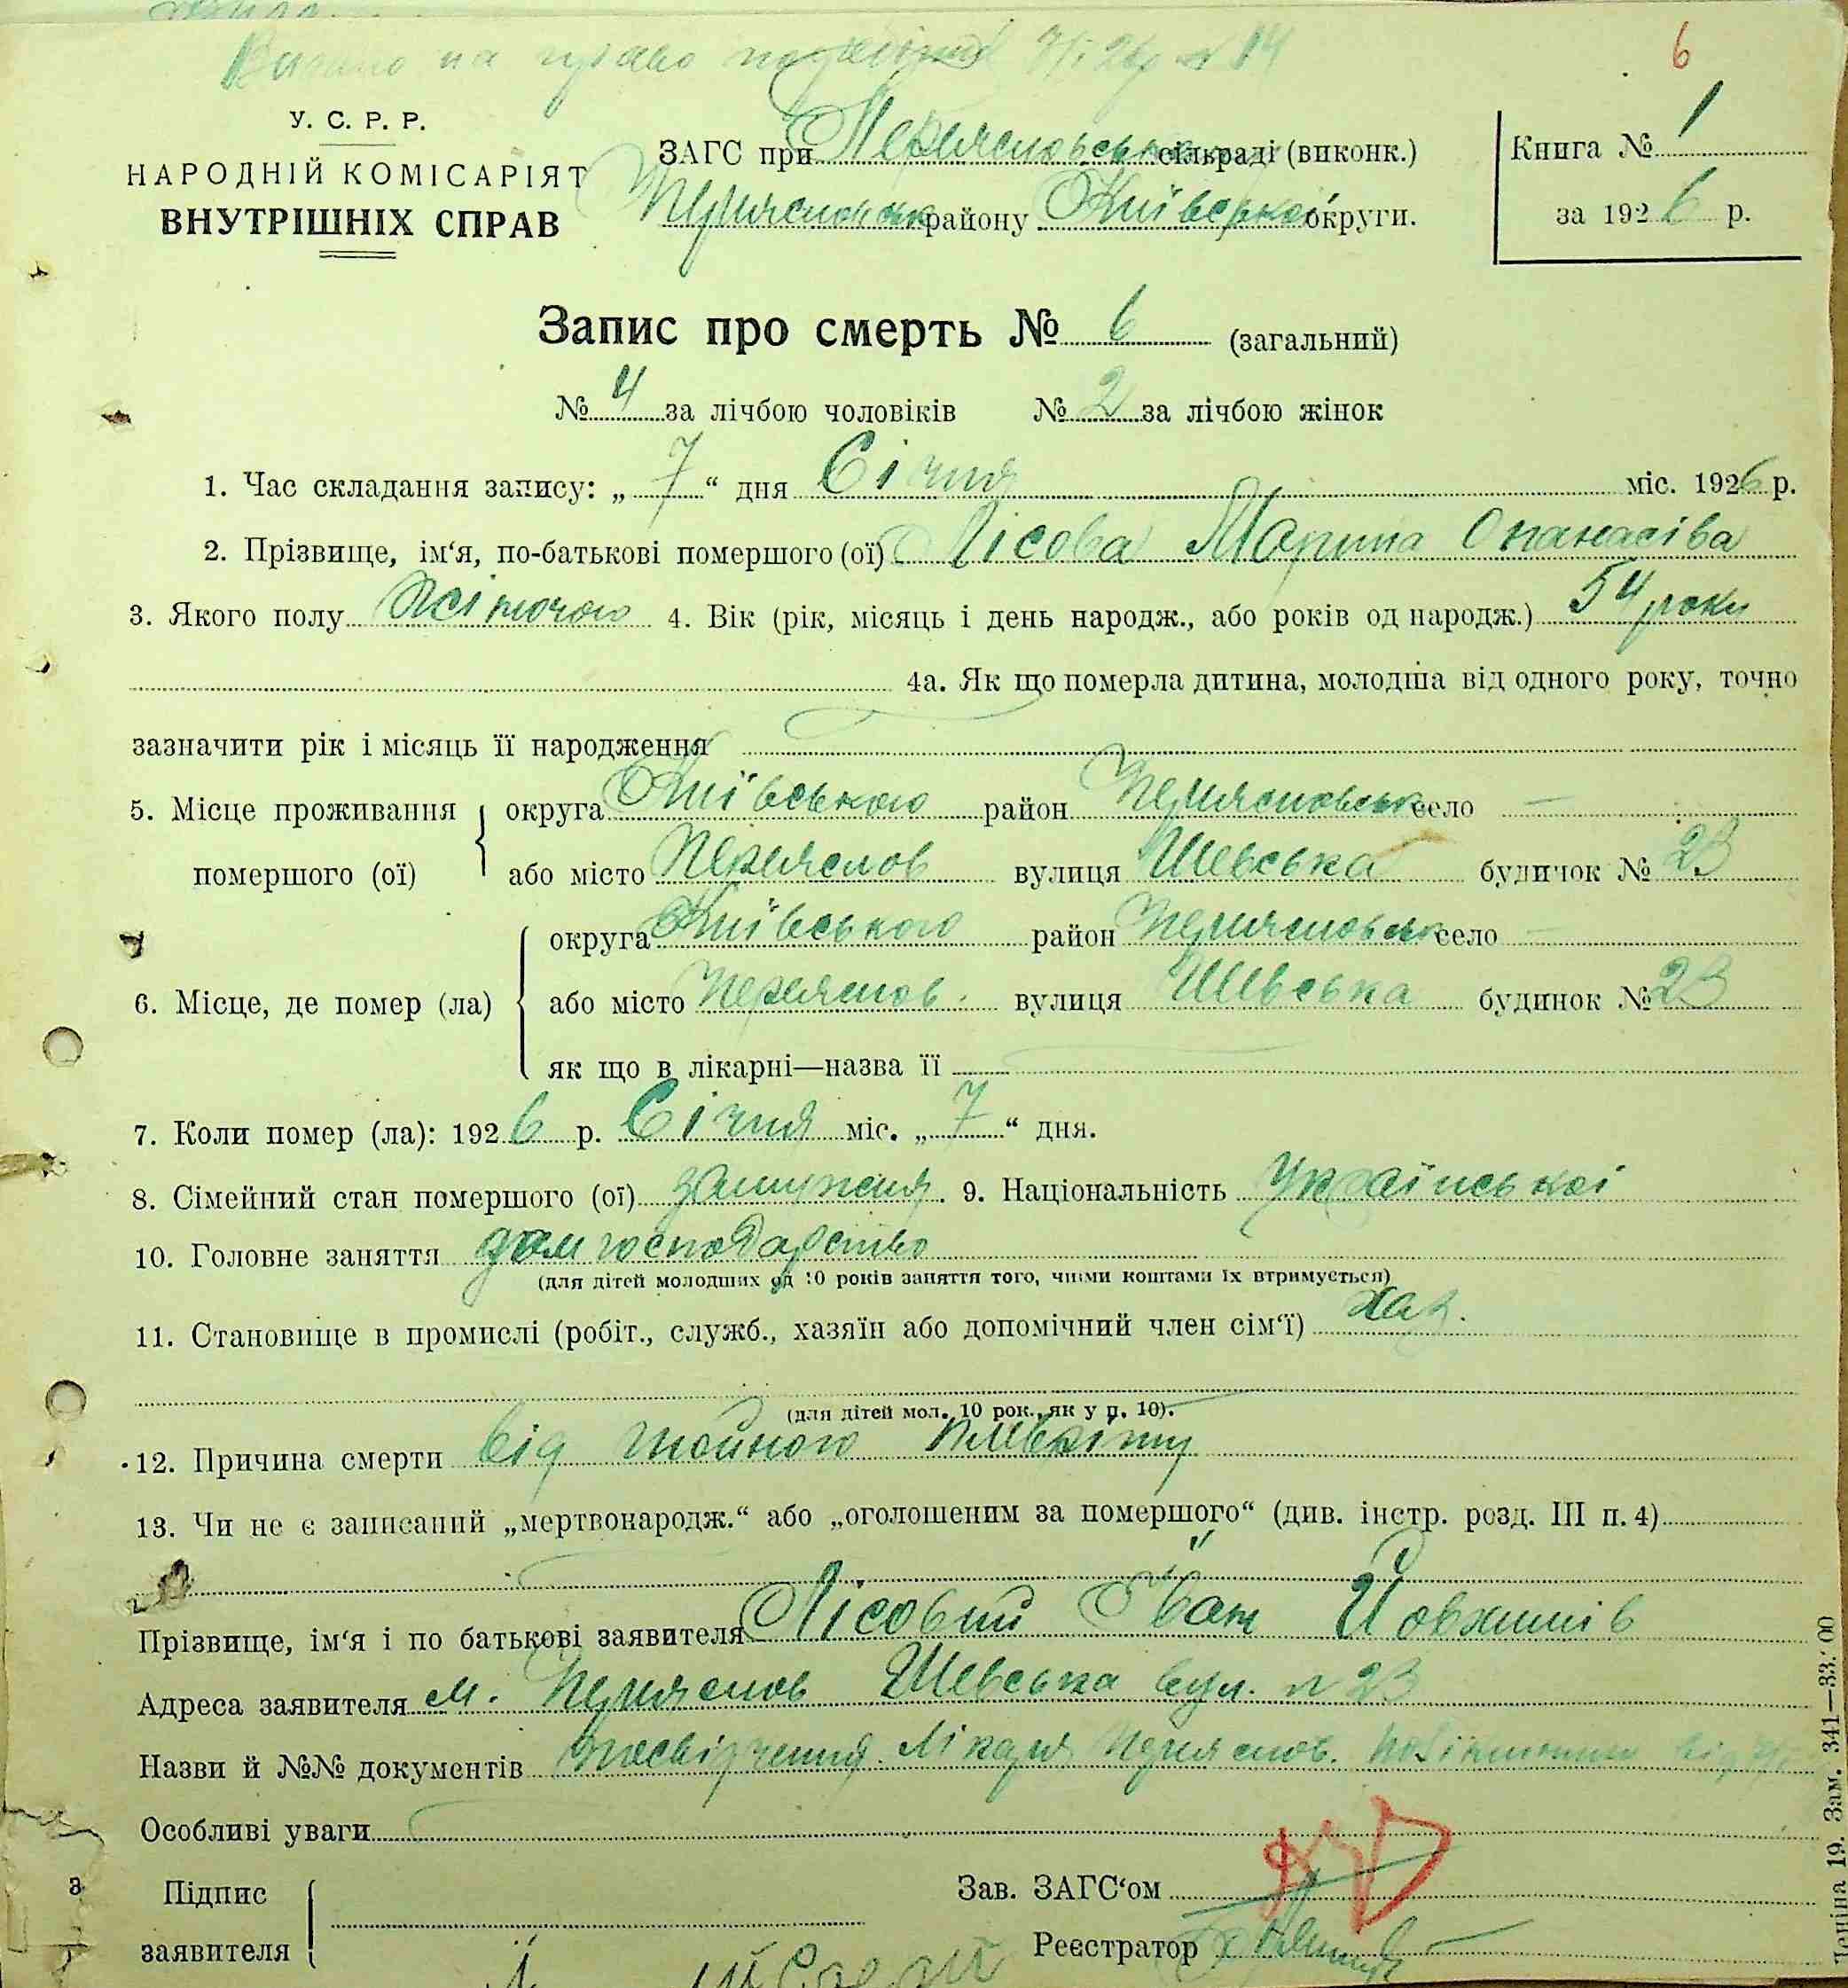 Видано на право 7/I 26р № 14
6
У. С. Р. Р.
НАРОДНІЙ КОМІСАРІЯТ
ВНУТРІШНІХ СПРАВ
ЗАГС при Переясловськ сільраді (виконк.)
Переясловськ району Київської округи.
Книга № 1
за 1926 р.
Запис про смерть № 6 (загальний)
№ 4 за лічбою чоловіків № 2 за лічбою жінок
1. Час складання запису: „ 7 “ дня Січня міс. 1926 р.
2. Прізвище, ім‘я, по-батькові помершого (ої) Лісова Марина Опанасіва
3. Якого полу жіночого 4. Вік (рік, місяць і день народж., або років од народж.) 54 роки
4а. Як що померла дитина, молодша від одного року, точно
зазначити рік і місяць її народження
5. Місце проживання помершого (ої) округа Київського район Переясловськ село —
або місто Переяслов вулиця Шевська будинок № 23
6. Місце, де помер (ла) округа Київського район Переясловськ село —
або місто Переяслов. вулиця Шевська будинок № 23
як що в лікарні—назва її
7. Коли помер (ла): 1926 р. Січня міс. „ 7 “ дня.
8. Сімейний стан помершого (ої) замужня. 9. Національність Української
10. Головне заняття дом господарство
(для дітей молодших од 10 років заняття того, чиїми коштами їх втримується)
11. Становище в промислі (робіт., служб., хазяїн або допомічний член сім‘ї) хаз.
(для дітей мол. 10 рок., як у п. 10).
12. Причина смерти від гнойного плевріту
13. Чи не є записаний „мертвонародж.“ або „оголошеним за помершого“ (див. інстр. розд. III п. 4)
Прізвище, ім‘я і по батькові заявителя Лісовий Іван Йовхимів
Адреса заявителя м. Переяслов Шевська вул. № 23
Назви й №№ документів посвідчення Лікаря Переяслов. від 7/I
Особливі уваги
Підпис заявителя
Зав. ЗАГС‘ом
Реєстратор
Леніна 19. Зам. 341—33.00